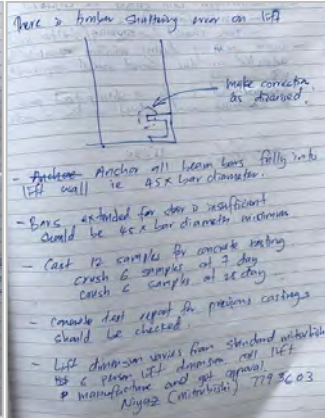 There is timber shuttering error on lift
make correction
as discussed.
- Anchor all beam bars fully into
lift wall ie 45 x bar diameter.
- Bars extended for stair is insufficient
should be 45 x bar diameter minimum
- Cast 12 samples for concrete testing
crush 6 samples at 7 day
crush 6 samples at 28 day
- Concrete test report for previous castings
should be checked.
- Lift dimension varies from standard mitsubishi
6 person lift dimension. call lift
manufacture and get approval
Niyaz (mitsubishi) 7793603